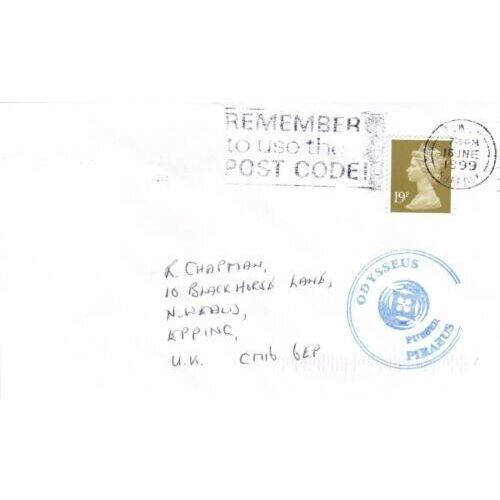 REMEMBER
to use the
POST CODE!
16 JNE
1999
19P
R. CHAPMAN,
10 BLACKHORSE LANE,
N. WEALD,
EPPING,
U.K. CM16 6EP
ODYSSEUS
PURSER
PIRAEUS